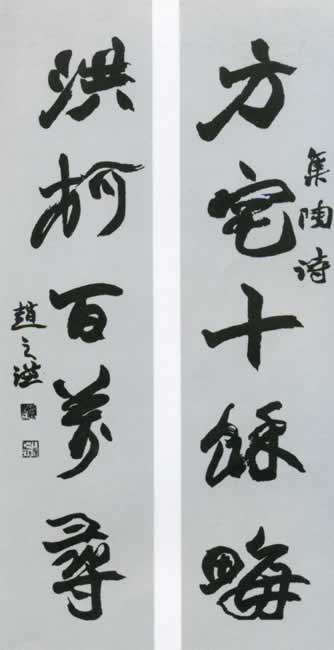 方宅十餘畮
集陶詩
洪柯百萬尋
趙之謙